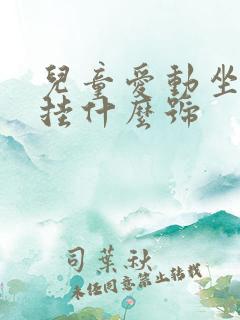 兒童愛動坐
掛什麼號
司葉秋
未經同意禁止轉載